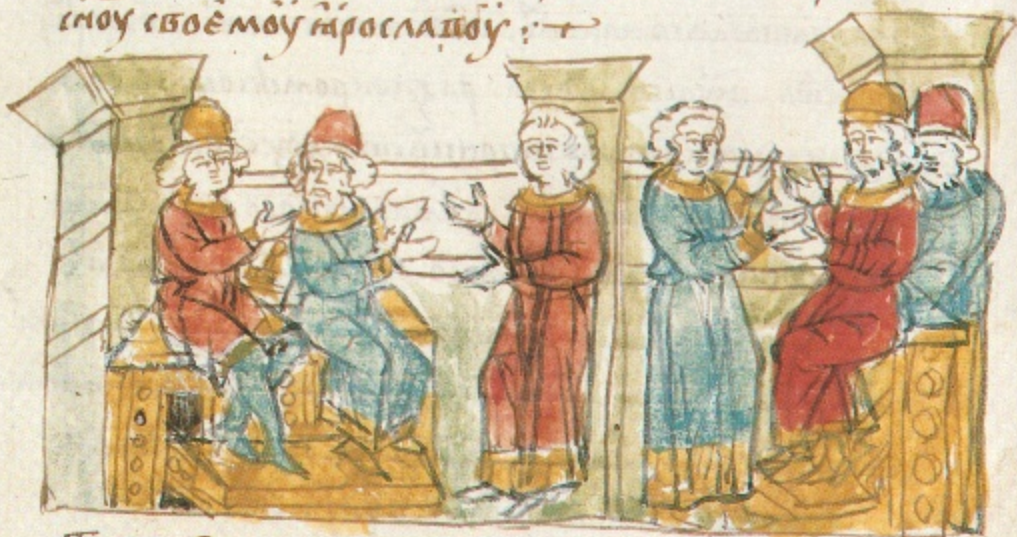 сн҃оу своемоу ꙗрославоу : +